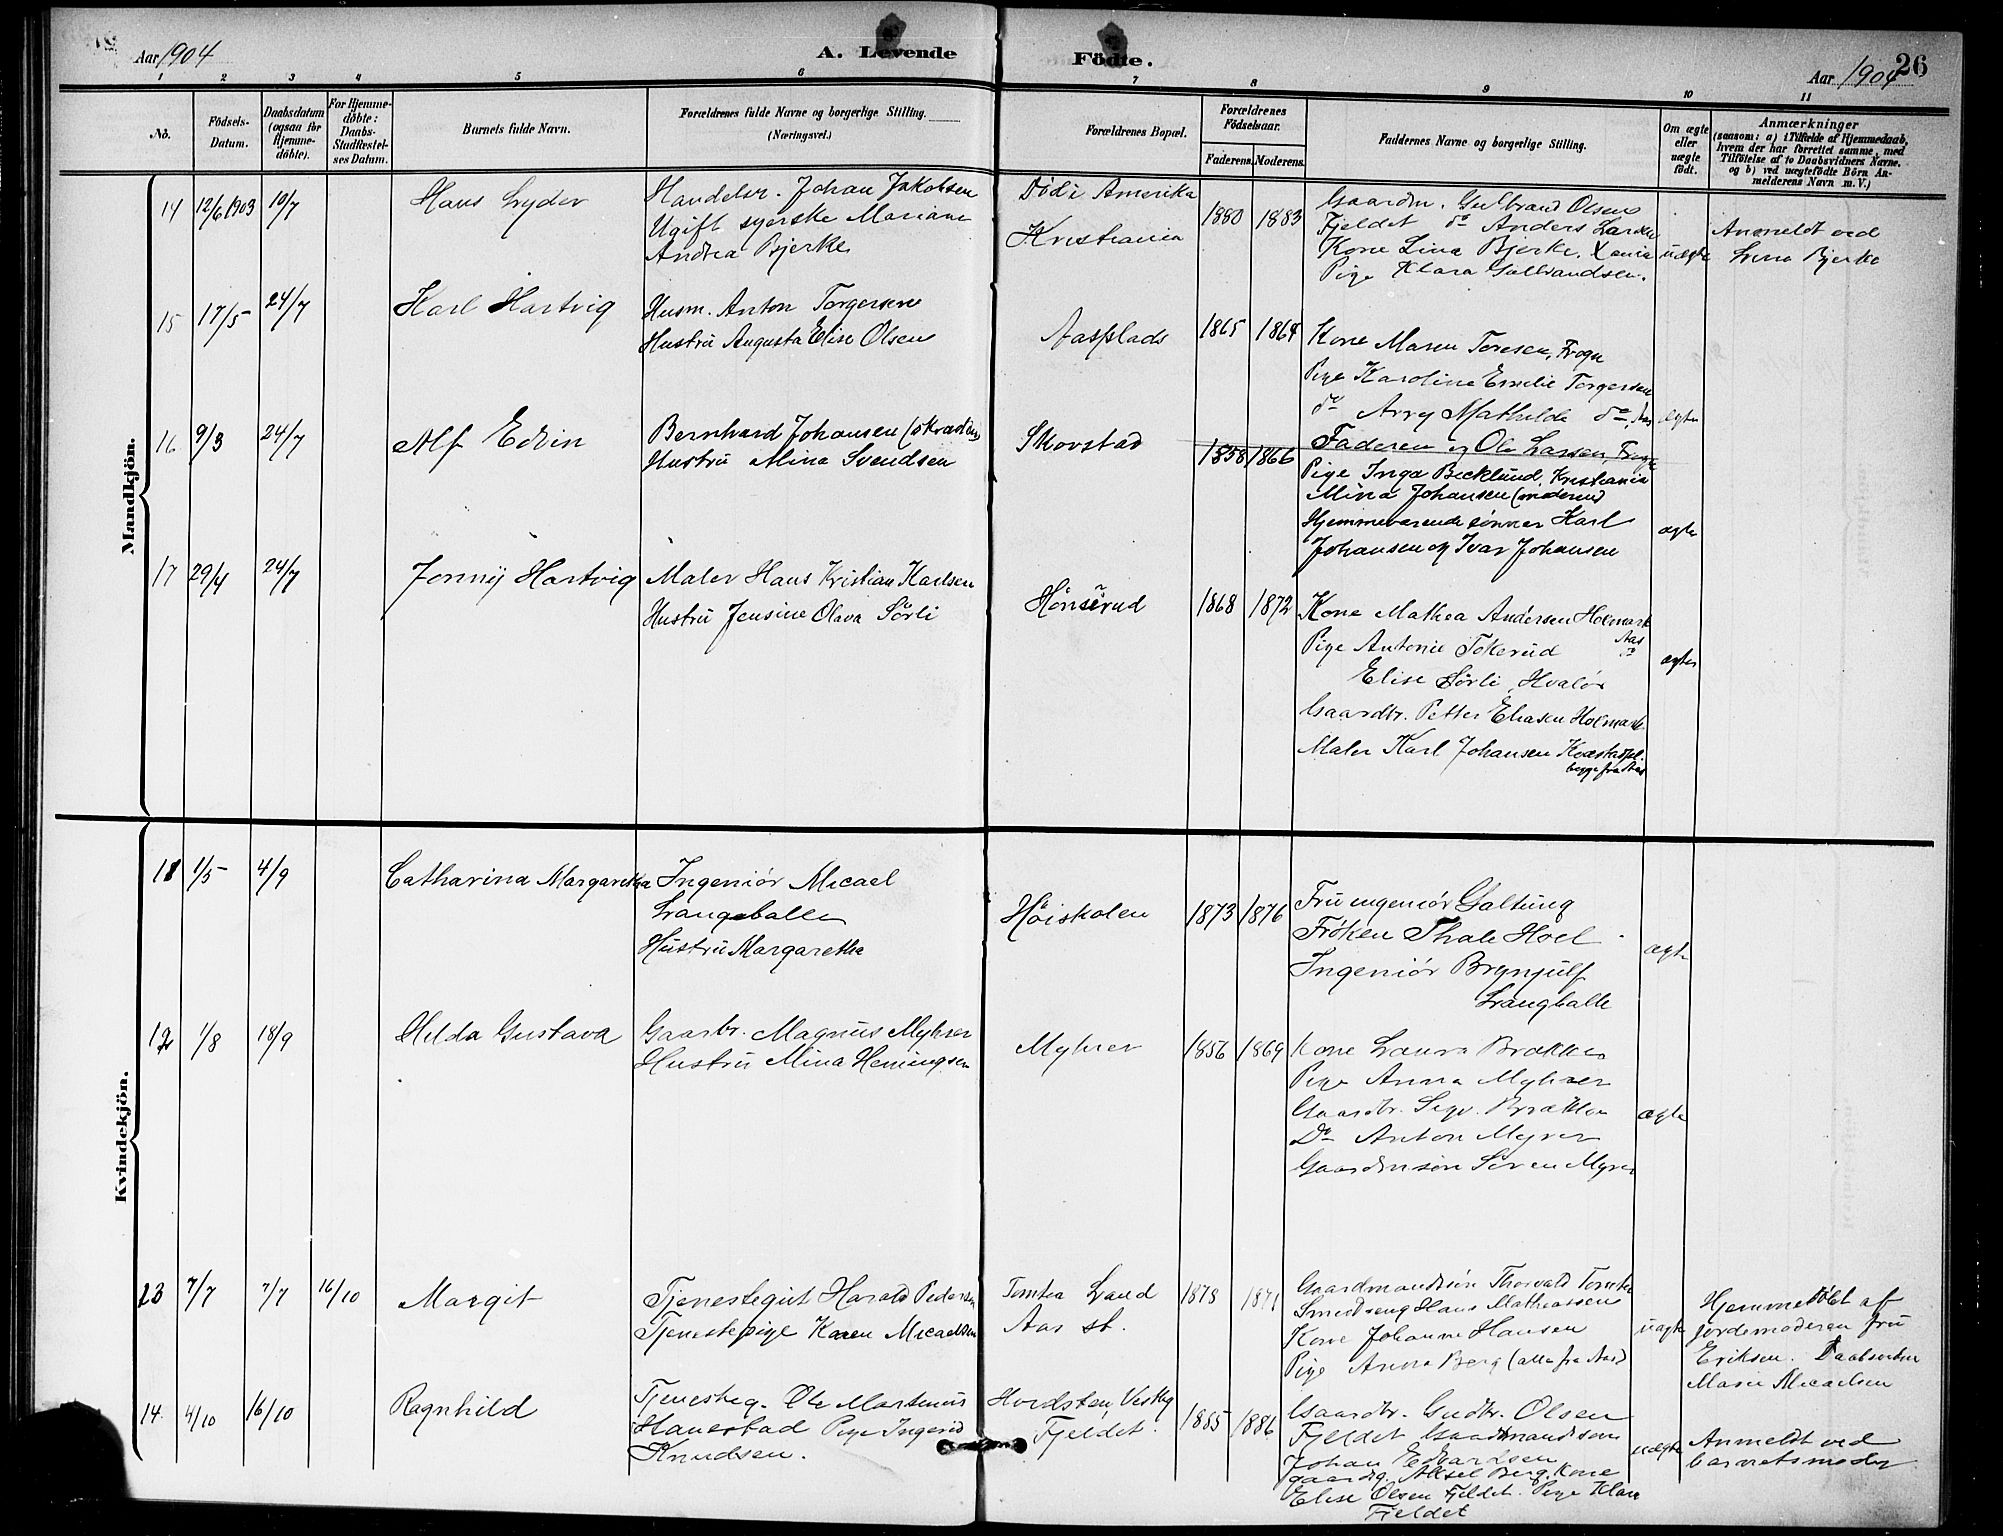 Aar 1904
A. Levende Födte.
Aar 1904
26
1 2 3 4 5 6 7 8 9 10 11
No.
Födsels-
Datum.
Daabsdatum
(ogsaa for
Hjemme-
döbte).
For Hjemme-
döbte:
Daabs-
Stadfæstel-
ses Datum.
Barnets fulde Navn.
Forældrenes fulde Navne og borgerlige Stilling.
(Næringsvei.)
Forældrenes Bopæl.
Forældrenes
Födselsaar.
Faderens. Moderens.
Faddernes Navne og borgerlige Stilling.
Om ægte
eller
uægte
födt.
Anmærkninger
(saasom: a) i Tilfælde af Hjemmedaab,
hvem der har forrettet samme, med
Tilföielse af to Daabsvidners Navne,
og b) ved uægtefödte Börn An-
melderens Navn m. V.)
Mandkjön.
14 12/6 1903 10/7
Hans Lyder
Handelsr. Johan Jakobsen
Ugift syerske Mariane
Andrea Bjerke
Död i Amerika
Kristiania
1880 1883
Gaardm. Gulbrand Olsen
Fjeldet do Anders Larsen
Kone Lina Bjerke, Xania
Pige Klara Gulbrandsen.
uægte
Anmeldt ved
Lina Bjerke
15 17/5 24/7
Karl Hartvig
Husm. Anton Torgersen
Hustru Augusta Elise Olsen
Aasplads
1865 1864
Kone Maren Toresen, Frogn
Pige Karoline Emilie Torgersen
do Arry Mathilde do, Aas
ægte
16 9/3 24/7
Alf Edvin
Bernhard Johansen (skrædder)
Hustru Mina Svendsen
Skovstad
1858 1866
Faderen og Ole Larsen, Frogn
Pige Inga Becklund, Kristiania
Mina Johansen (moderen)
Hjemmeværende sönner Karl
Johansen og Ivar Johansen
ægte
17 29/4 24/7
Jonny Hartvig
Maler Hans Kristian Karlsen
Hustru Jensine Olava Sörli
Hönserud
1868 1872
Kone Mathea Andersen Holmark
Aas
Pige Antonie Tokerud do
Elise Sörli, Hvalör
Gaardbr. Petter Eliasen Holmark
Maler Karl Johansen
begge fra Aas
ægte
Kvindekjön.
11 1/5 4/9
Catharina Margaretha
Ingeniör Micael
Langballe
Hustru Margaretha
Höiskolen
1873 1876
Fru ingeniör Galtung
Fröken Thale Hoel
Ingeniör Brynjulf
Langballe
ægte
12 1/8 18/9
Hilda Gustava
Gaarbr. Magnus Myhrer
Hustru Mina Heningsen
Myhrer
1856 1869
Kone Laura Brække
Pige Anna Myhrer
Gaardbr. Sigv. Brække
Do Anton Myrer
Gaardmsön Sören Myrer
ægte
13 7/7 7/7 16/10
Margit
Tjenestegut Harald Pedersen
Tjenestepige Karen Micaelsen
Tomten Land
Aas st.
1878 1871
Gaardmandssön Thorvald Tomter
Smedsveng Hans Mathiassen
Kone Johanne Hansen
Pige Anna Berg (alle fra Aas)
uægte
Hjemmedöbt af
jordemoderen fru
Eriksen. Daabsvidne
Marie Micaelsen
14 4/10 16/10
Ragnhild
Tjenesteg. Ole Martinius
Hanestad Pige Ingerid
Knudsen.
Hvidsten, Vestby
Fjeldet.
1885 1886
Gaardbr. Gudbr. Olsen
Fjeldet Gaardmandssön
Johan Edvardsen
gaardsg. Aksel Berg. Kone
Elise Olsen Fjeldet. Pige Klara
Fjeldet
uægte
Anmeldt ved
barnetsmoder